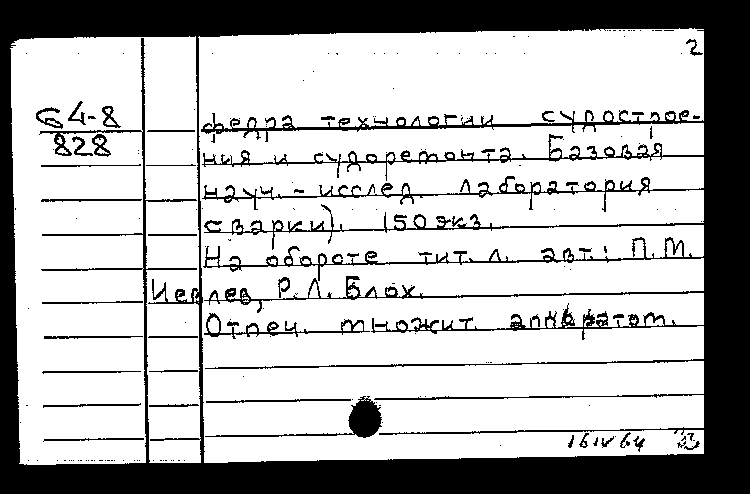 2
64-8
828
федра технологии судострое-
ния и судоремонта. Базовая
науч.-исслед. лаборатория
сварки). 150 экз.
На обороте тит. л. авт.: П.М.
Иевлев, Р.Л. Блох.
Отпеч. множит. аппаратом.
16 IV 64